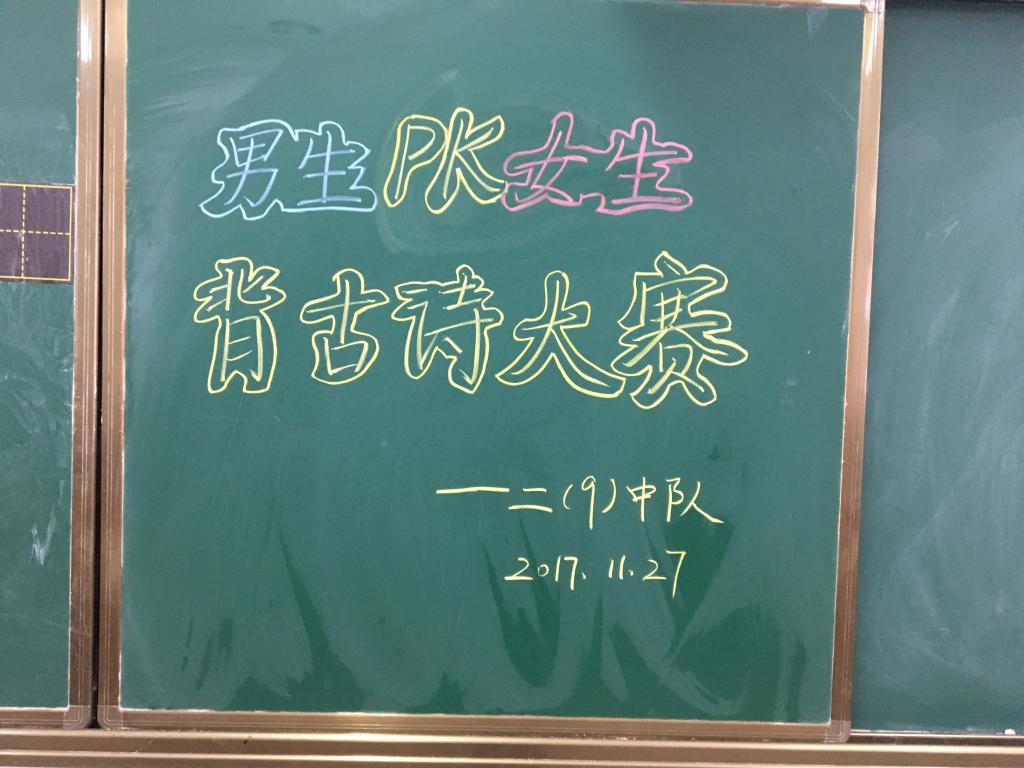 男生PK女生
背古诗大赛
——二(9)中队
2017.11.27